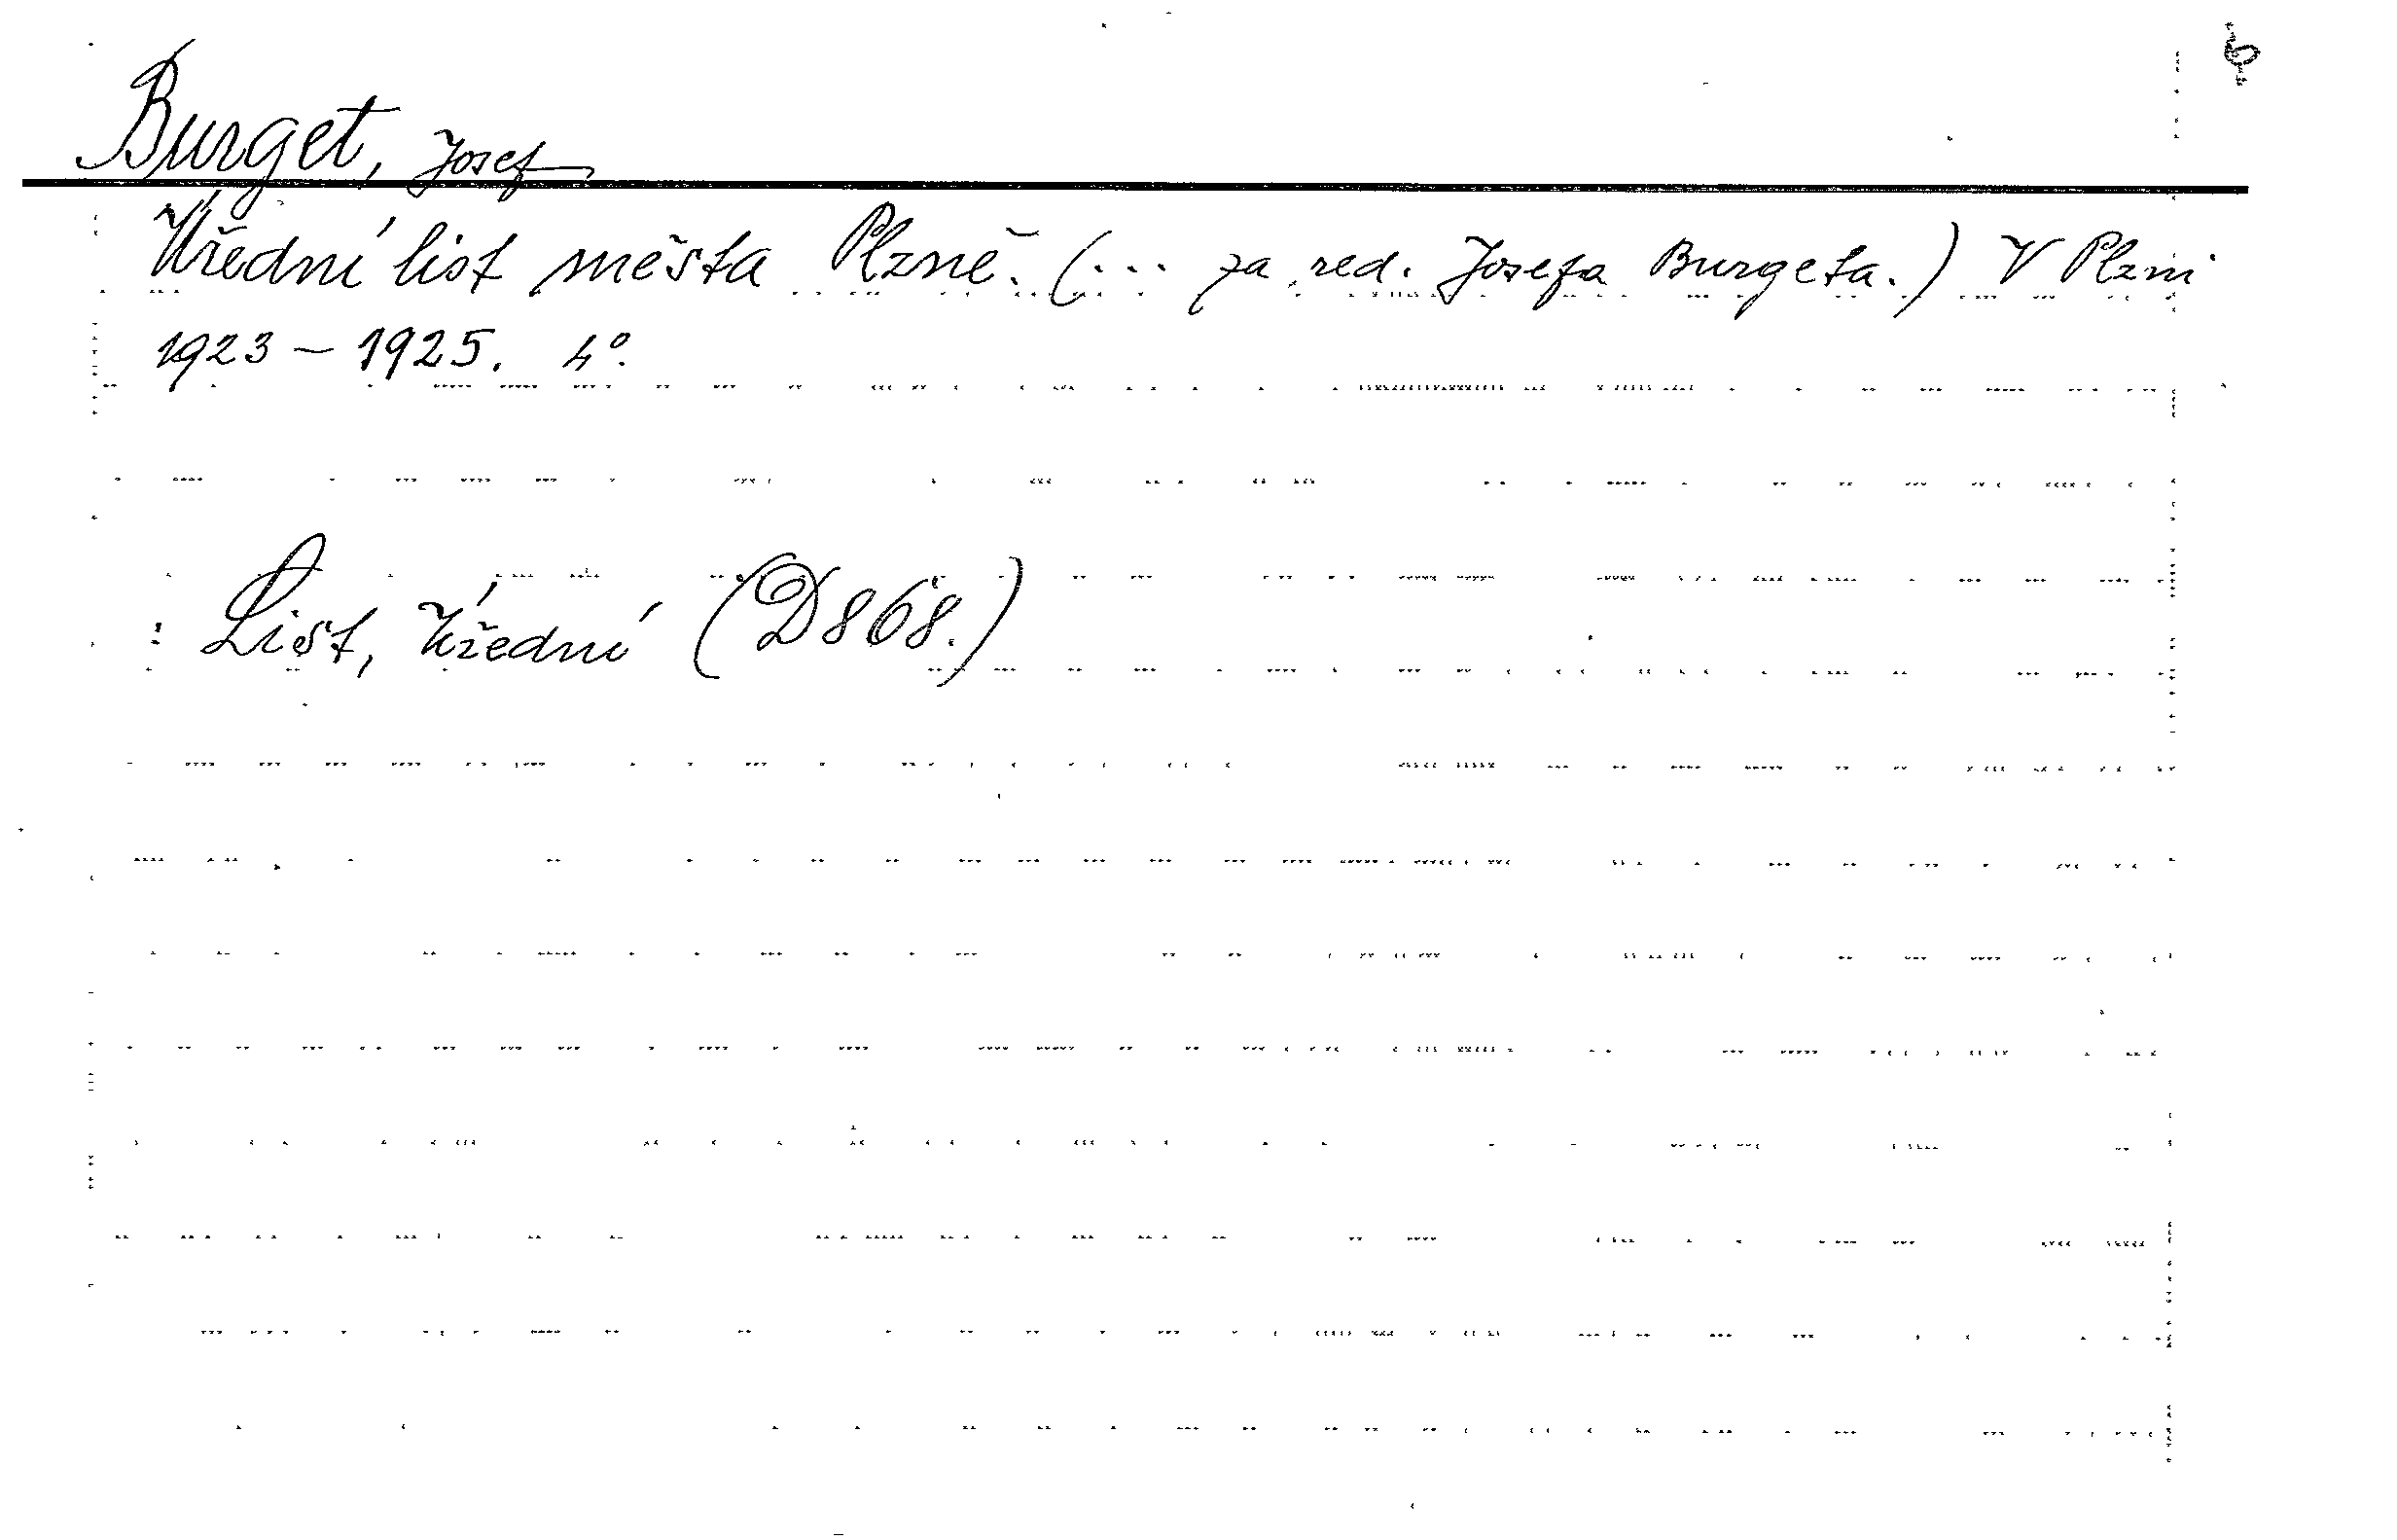 Burget, Josef
Úřední list města Plzně. (... za red. Josefa Burgeta.) V Plzni
1923 – 1925. 4°.
: List, úřední (D 868.)